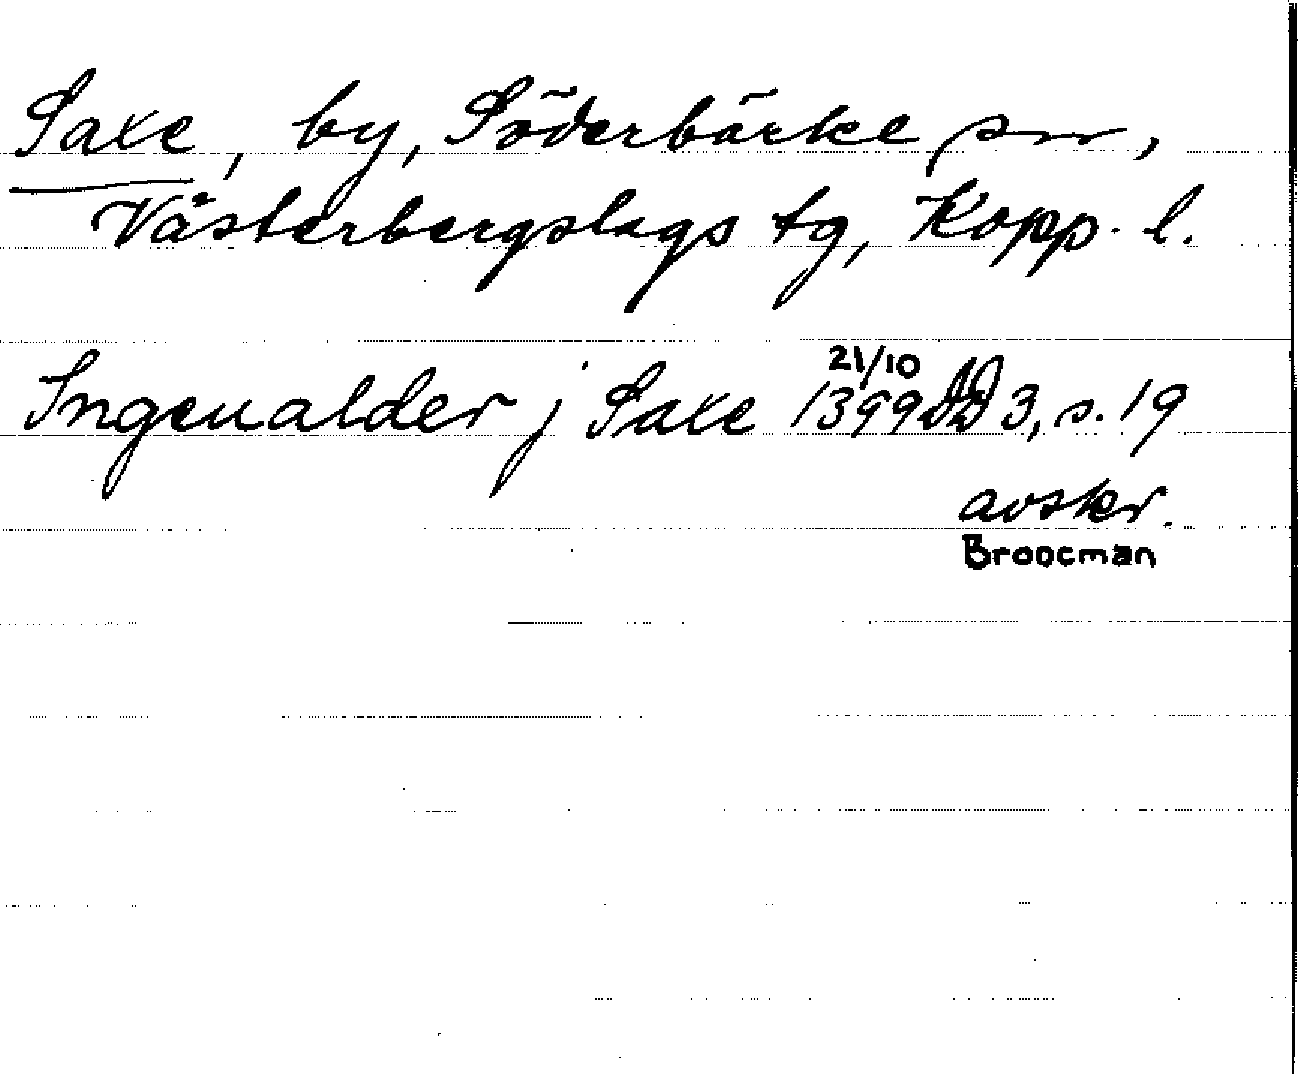 Saxe, by, Söderbärke sn,
Västerbergslags tg, Kopp. l.
21/10
Ingeualder j Saxe 1399 DD 3, s. 19
avskr.
Broocman